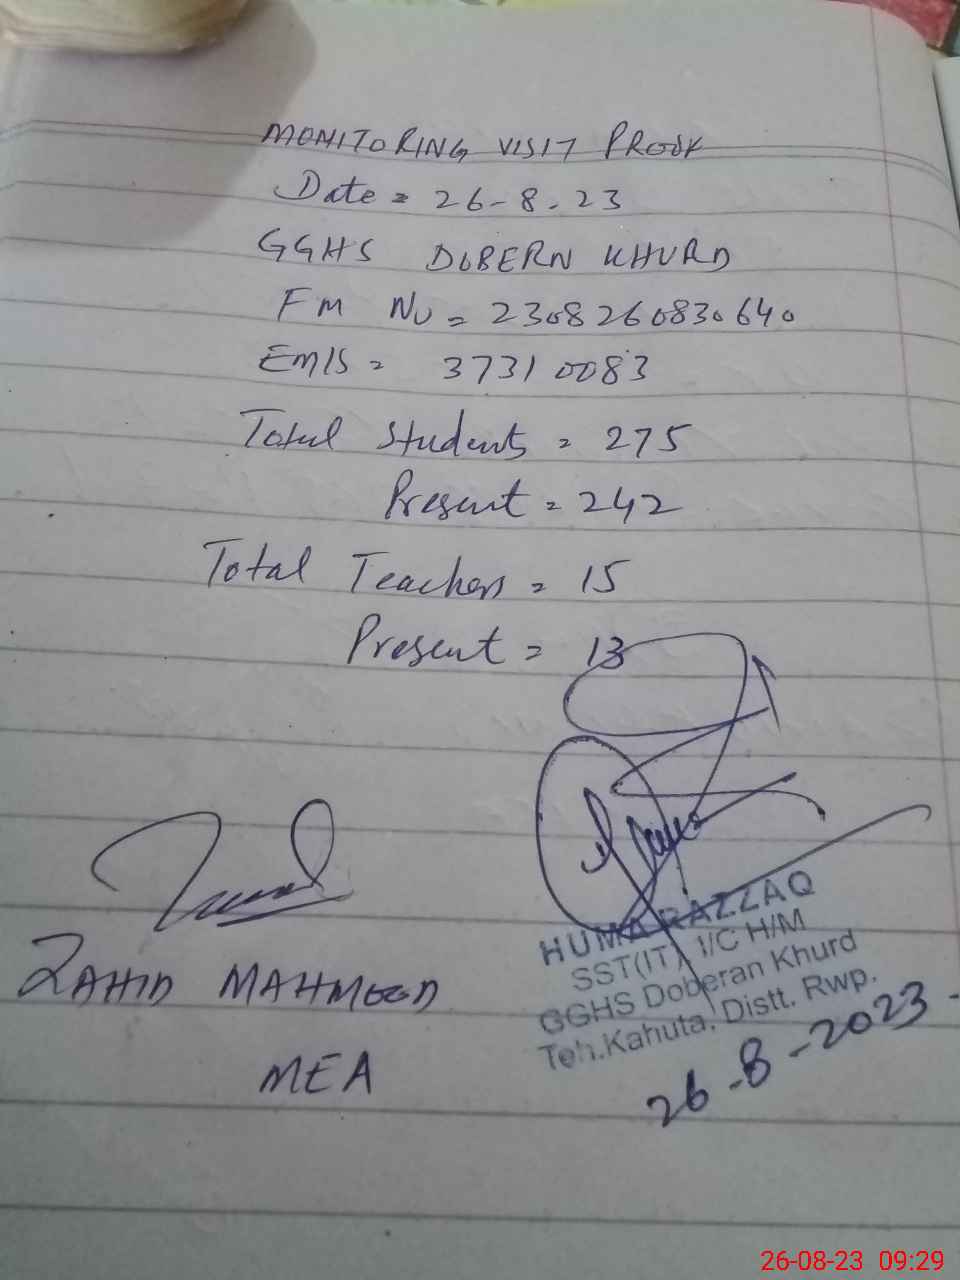 MONITORING VISIT PROOF
Date = 26-8-23
GGHS DOBERN KHURD
FM NO = 2308260830640
EMIS = 37310083
Total Students = 275
Present = 242
Total Teachers = 15
Present = 13
ZAHID MAHMOOD
MEA
HUMA RAZZAQ
SST(IT) I/C H/M
GGHS Doberan Khurd
Teh.Kahuta, Distt. Rwp.
26-8-2023
26-08-23 09:29